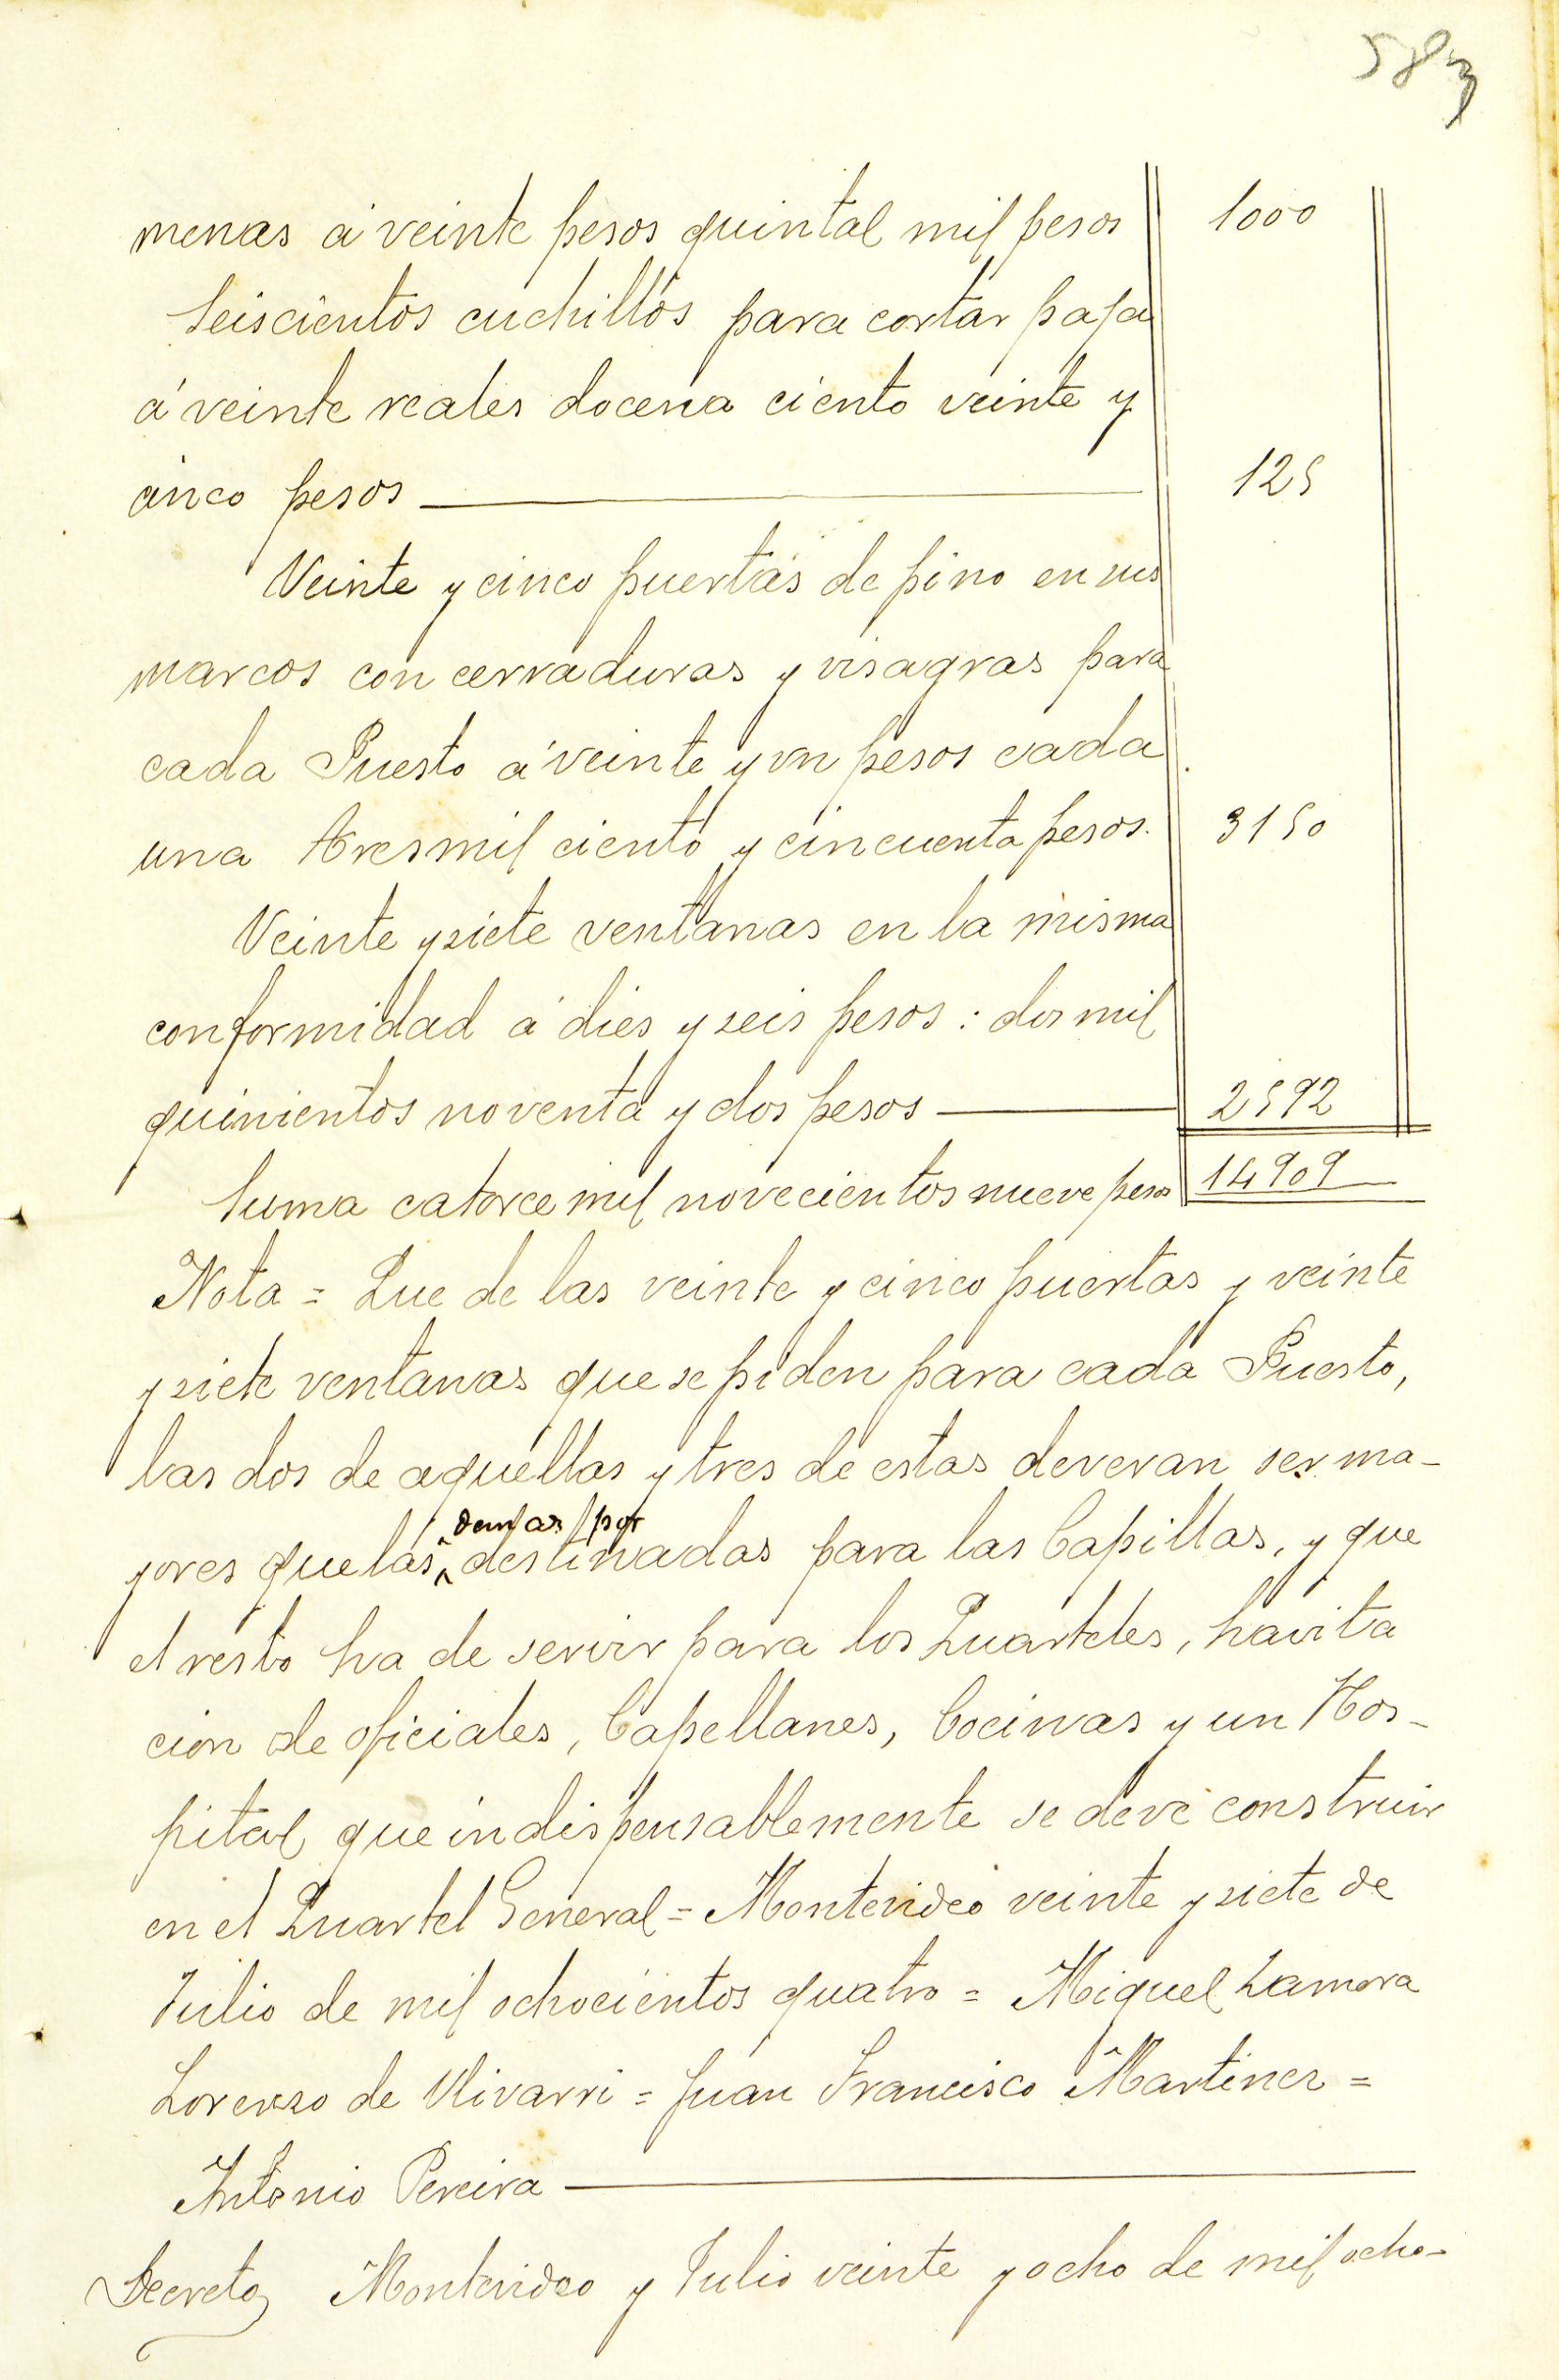 583
menas á veinte pesos quintal mil pesos 1000
Seiscientos cuchillos para cortar paja
á veinte reales docena ciento veinte y
cinco pesos 125
Veinte y cinco puertas de pino en sus
marcos con cerraduras y visagras para
cada Puesto á veinte y vn pesos cada
una tresmil ciento y cincuenta pesos. 3150
Veinte y siete ventanas en la misma
conformidad á dies y seis pesos: dos mil
quinientos noventa y dos pesos 2592
Suma catorce mil novecientos nueve pesos 14909
Nota = Que de las veinte y cinco puertas y veinte
y siete ventanas que se piden para cada Puesto,
las dos de aquellas y tres de estas deveran ser ma-
demas por
yores que las destinadas para las Capillas, y que
el resto ha de servir para los Quarteles, havita
cion de oficiales, Capellanes, Cocinas y un Hos-
pital que indispensablemente se deve construir
en el Quartel General = Montevideo veinte y siete de
Julio de mil ochocientos quatro = Miguel Zamora
Lorenzo de Vlivarri = Juan Francisco Martinez =
Antonio Pereira
Decreto Montevideo y Julio veinte y ocho de mil ocho-